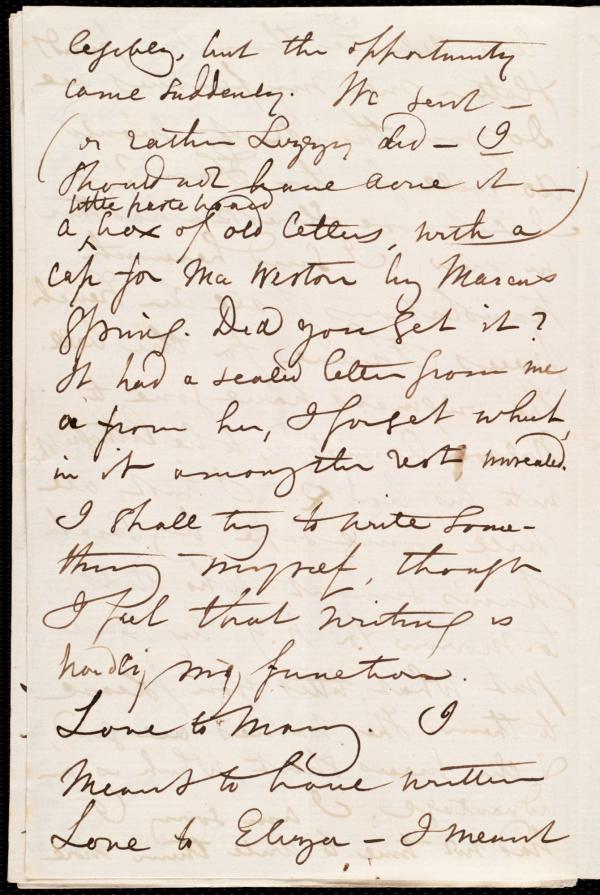 legibly, but the opportunity
came suddenly. We sent –
(or rather Lizzy did – I
should not have done it –)
little paste board
a box of old letters, with a
cap for Ma Weston by Marcus
Spring. Did you get it?
It had a sealed letter from me
or from her, I forget which,
in it among the rest unsealed.
I shall try to write some-
thing myself, though
I feel that writing is
hardly my function.
Love to Mary. I
meant to have written
Love to Eliza – I meant